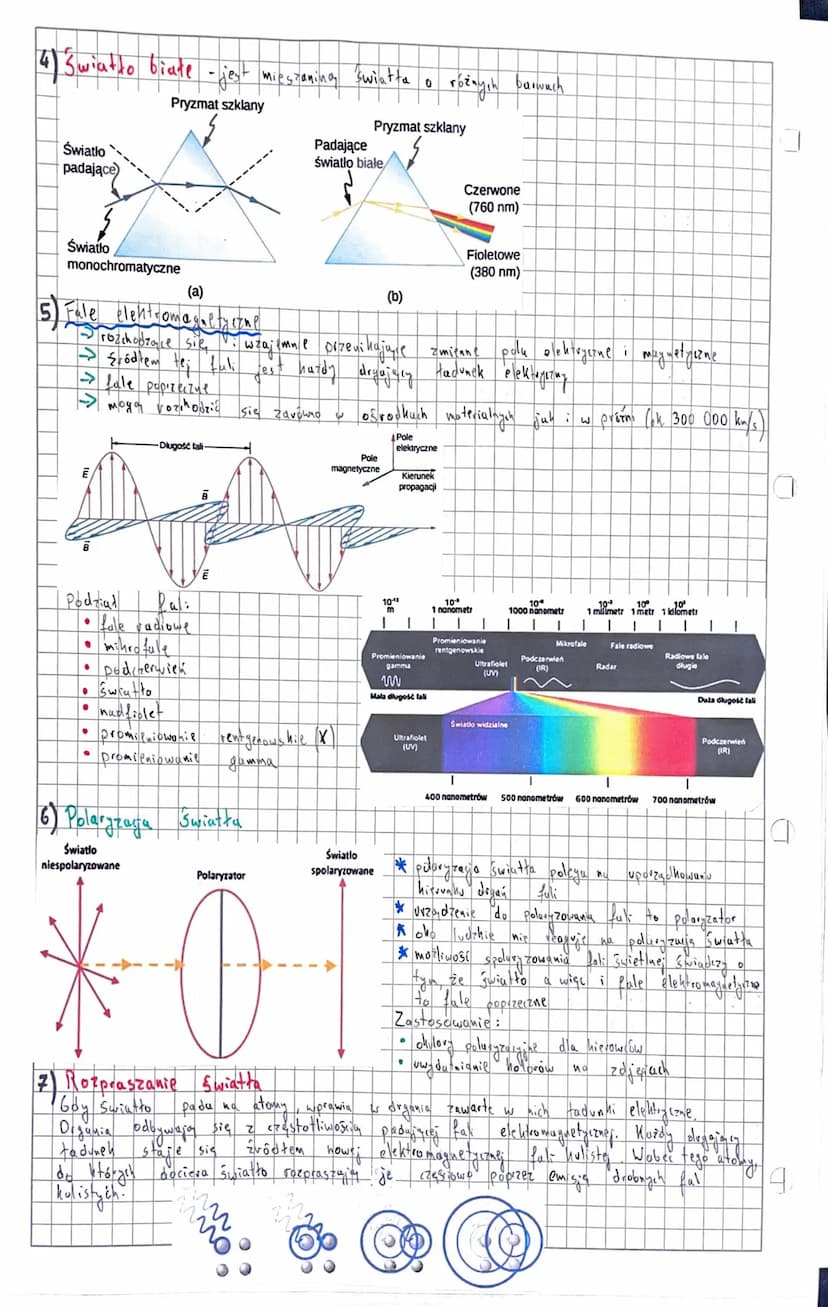 4) Światło białe - jest mieszaniną światła o różnych barwach
Pryzmat szklany
Światło
padające
Światło
monochromatyczne
(a)
Pryzmat szklany
Padające
światło białe
Czerwone
(760 nm)
Fioletowe
(380 nm)
(b)
5) Fale elektromagnetyczne
→ rozchodzące się i wzajemnie przenikające zmienne pola elektryczne i magnetyczne
→ źródłem tej fali jest każdy drgający ładunek elektryczny
→ fale poprzeczne
→ mogą rozchodzić się zarówno w ośrodkach materialnych jak i w próżni (ok. 300 000 km/s)
Długość fali
E
B
B
E
Pole
elektryczne
Pole
magnetyczne
Kierunek
propagacji
Podział fal:
• fale radiowe
• mikrofale
• podczerwień
• światło
• nadfiolet
• promieniowanie rentgenowskie (X)
• promieniowanie gamma
10⁻⁹
1 nanometr
1000 nanometr
1 milimetr
1 metr
1 kilometr
Promieniowanie
gamma
Promieniowanie
rentgenowskie
Ultrafiolet
(UV)
Podczerwień
(IR)
Mikrofale
Radar
Fale radiowe
Radiowe fale
długie
Mała długość fali
Duża długość fali
Ultrafiolet
(UV)
Światło widzialne
Podczerwień
(IR)
400 nanometrów 500 nanometrów 600 nanometrów 700 nanometrów
6) Polaryzacja światła
Światło
niespolaryzowane
Polaryzator
Światło
spolaryzowane
* polaryzacja światła polega na uporządkowaniu
kierunku drgań fali
* urządzenie do polaryzowania fali to polaryzator
* oko ludzkie nie reaguje na polaryzację światła
* możliwość spolaryzowania fali świetlnej świadczy o
tym, że światło a więc i fale elektromagnetyczne
to fale poprzeczne
Zastosowanie:
• okulary polaryzacyjne dla kierowców
• uwydatnianie kolorów na zdjęciach
7) Rozpraszanie światła
Gdy światło pada na atomy, wprawia w drgania zawarte w nich ładunki elektryczne.
Drgania odbywają się z częstotliwością padającej fali elektromagnetycznej. Każdy drgający
ładunek staje się źródłem nowej elektromagnetycznej fali kulistej. Wobec tego atomy,
do których dociera światło rozpraszają je częściowo poprzez emisję drobnych fal
kulistych.